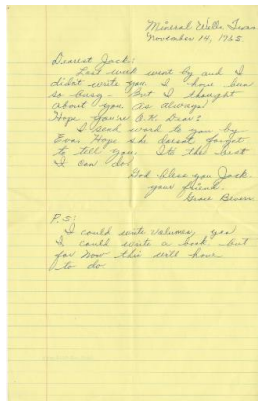 Mineral Wells, Texas
November 14, 1965
Dearest Jack:
Last week went by and I
didn't write you. I have been
so busy - But I thought
about you as always
Hope you're O.K. Dear?
I send word to you by
Eva. Hope she doesn't forget
to tell you. Its the best
I can do.
God bless you Jack
your friend,
P.S:
I could write volumes, yea
I could write a book. but
for now this will have
to do.